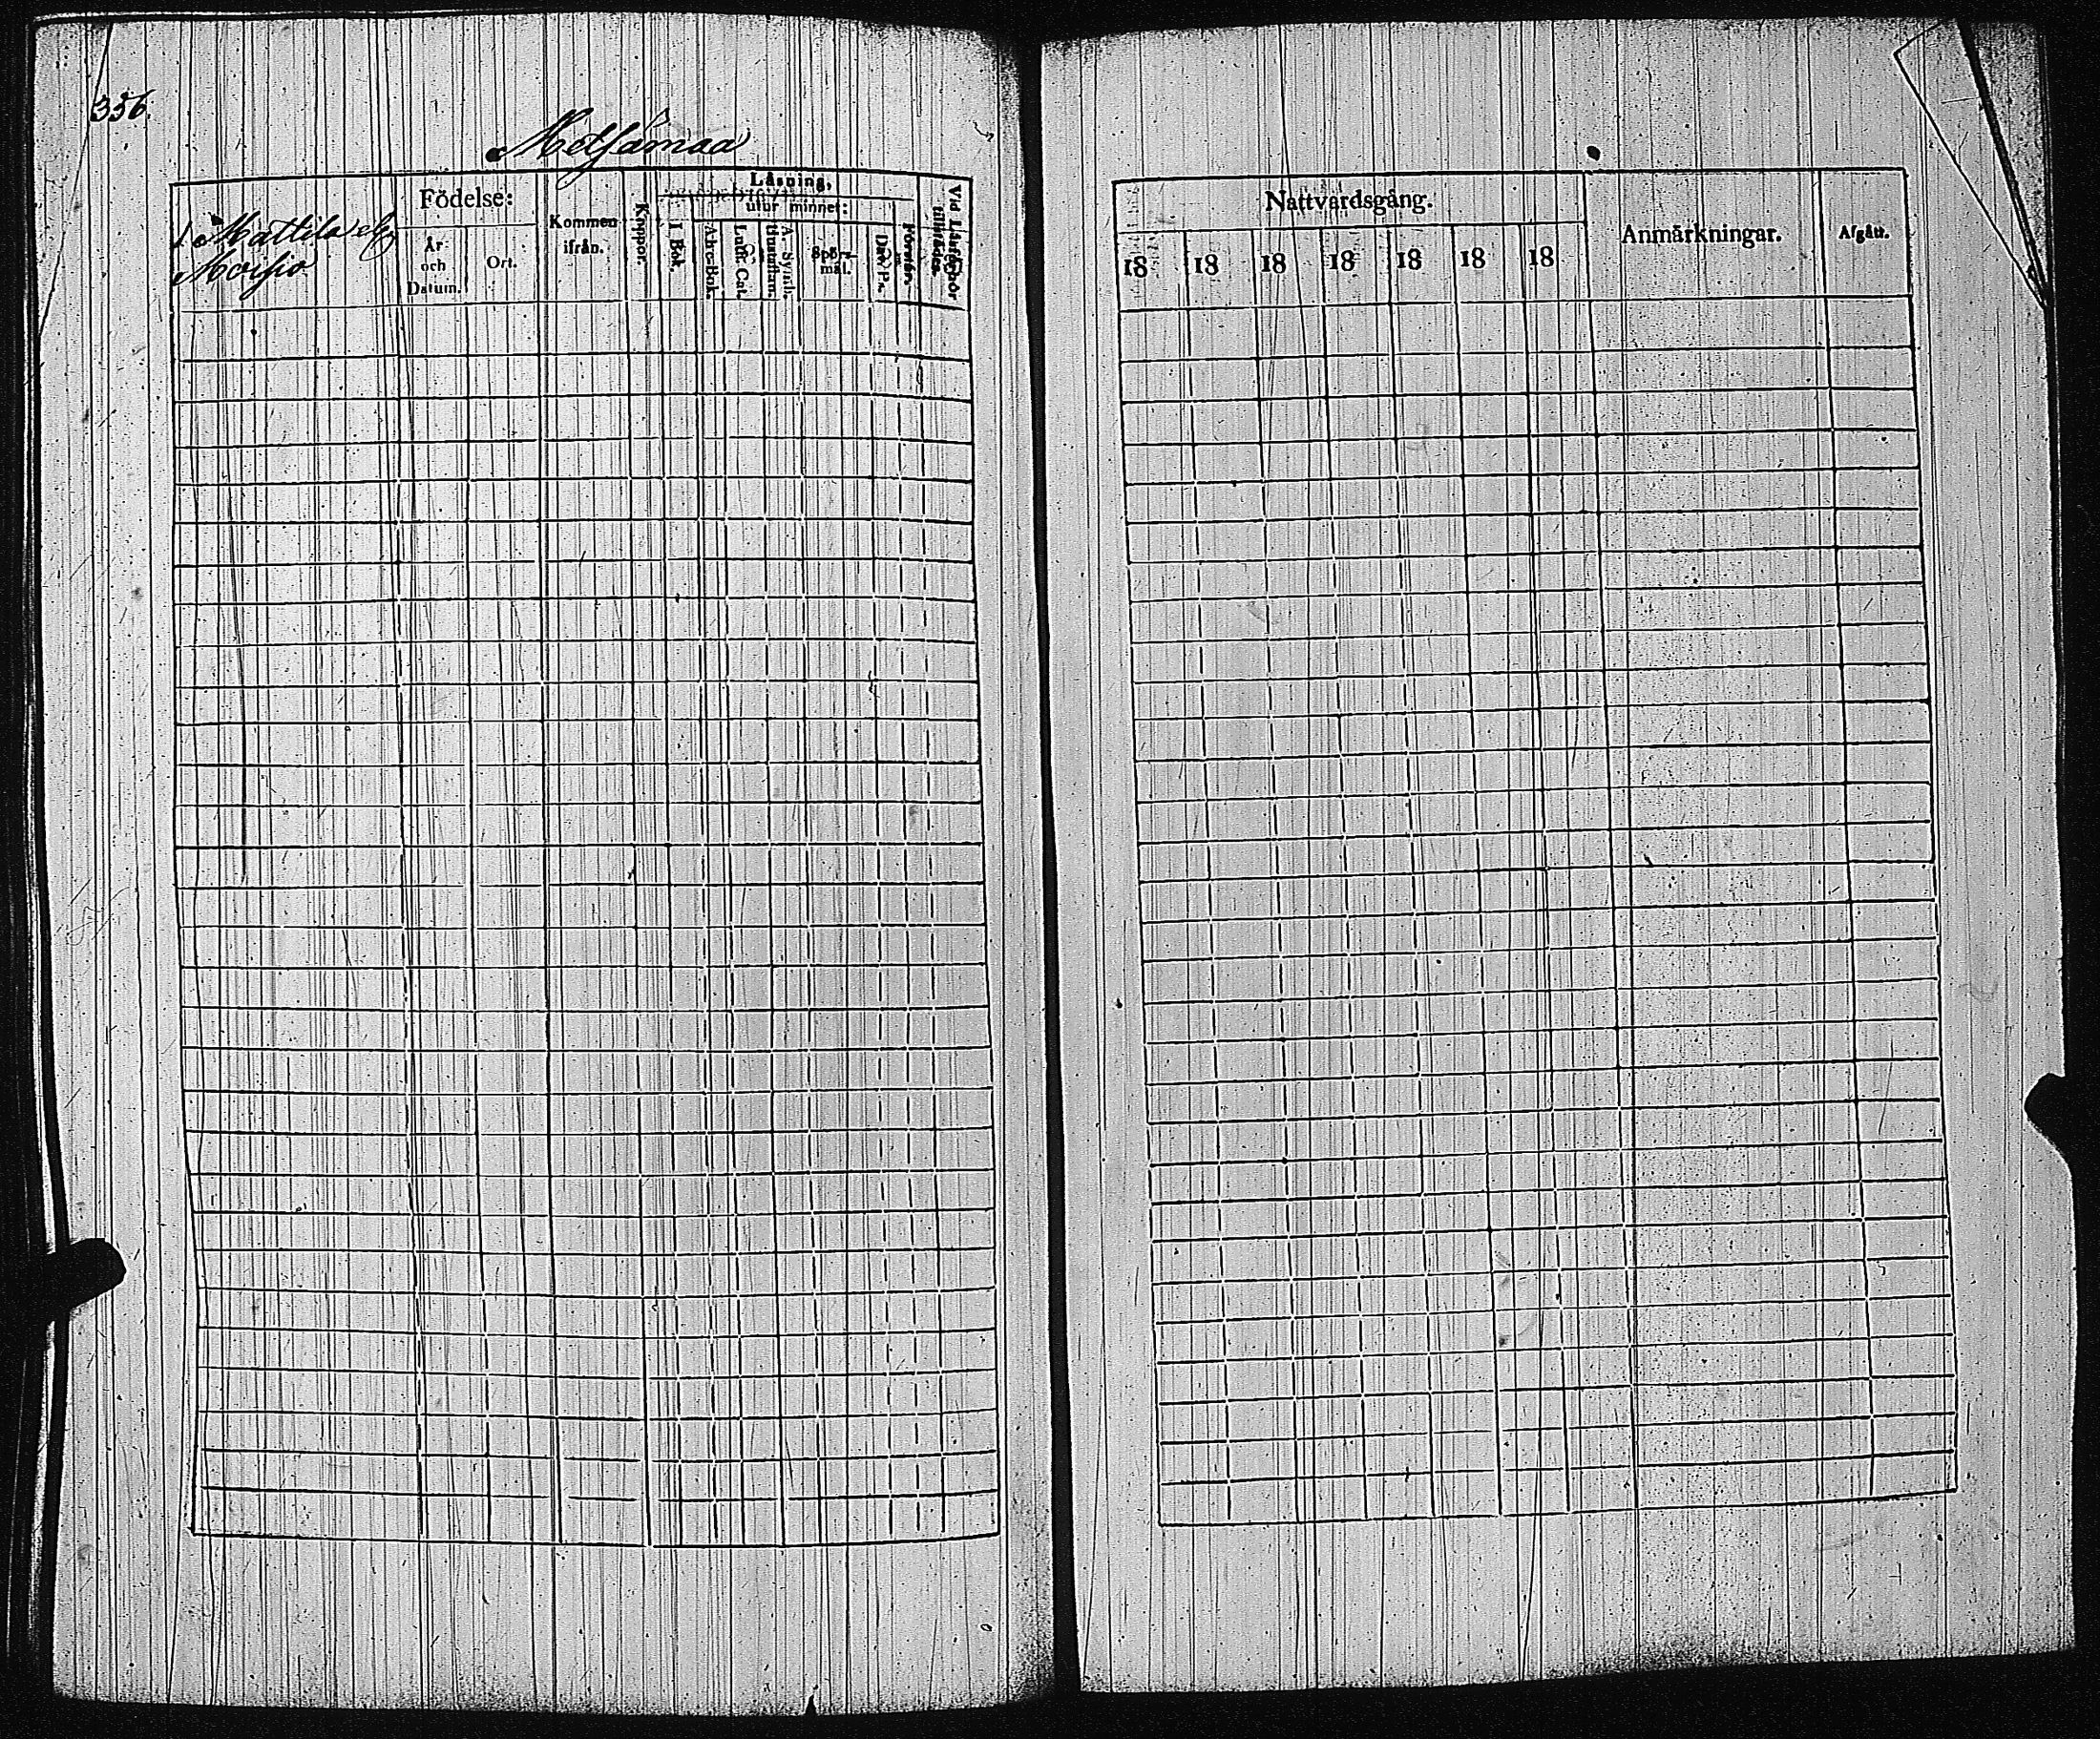 356.
Metsämaa
1 Mattila el.
Födelse:
År och Datum.
Ort.
Kommen ifrån.
Koppor.
Läsning,
utur minnet:
I Bok.
Abc-Bok.
Luth. Cat.
A. Symb.
Spörs-mål.
Dav. Ps.
Förstår.
Vid Läsförhör
Nattvardsgång.
18 18 18 18 18 18 18
Anmärkningar.
Afgått.